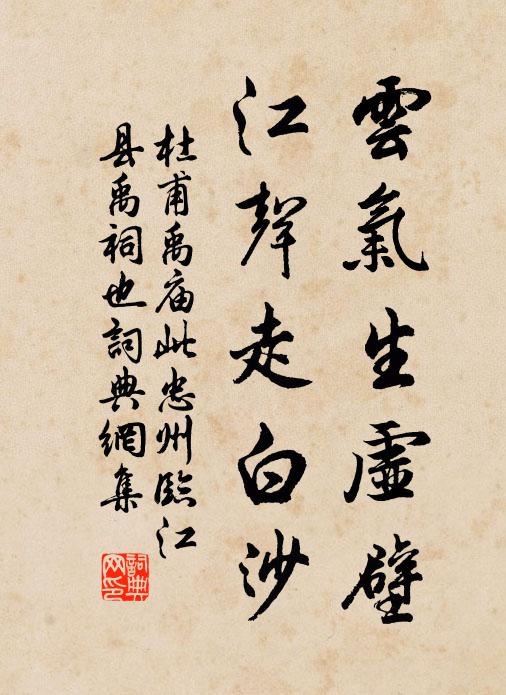 雲氣生虛壁
江聲走白沙
杜甫禹庙此忠州臨江
县禹祠也詞典網集
詞典
网印